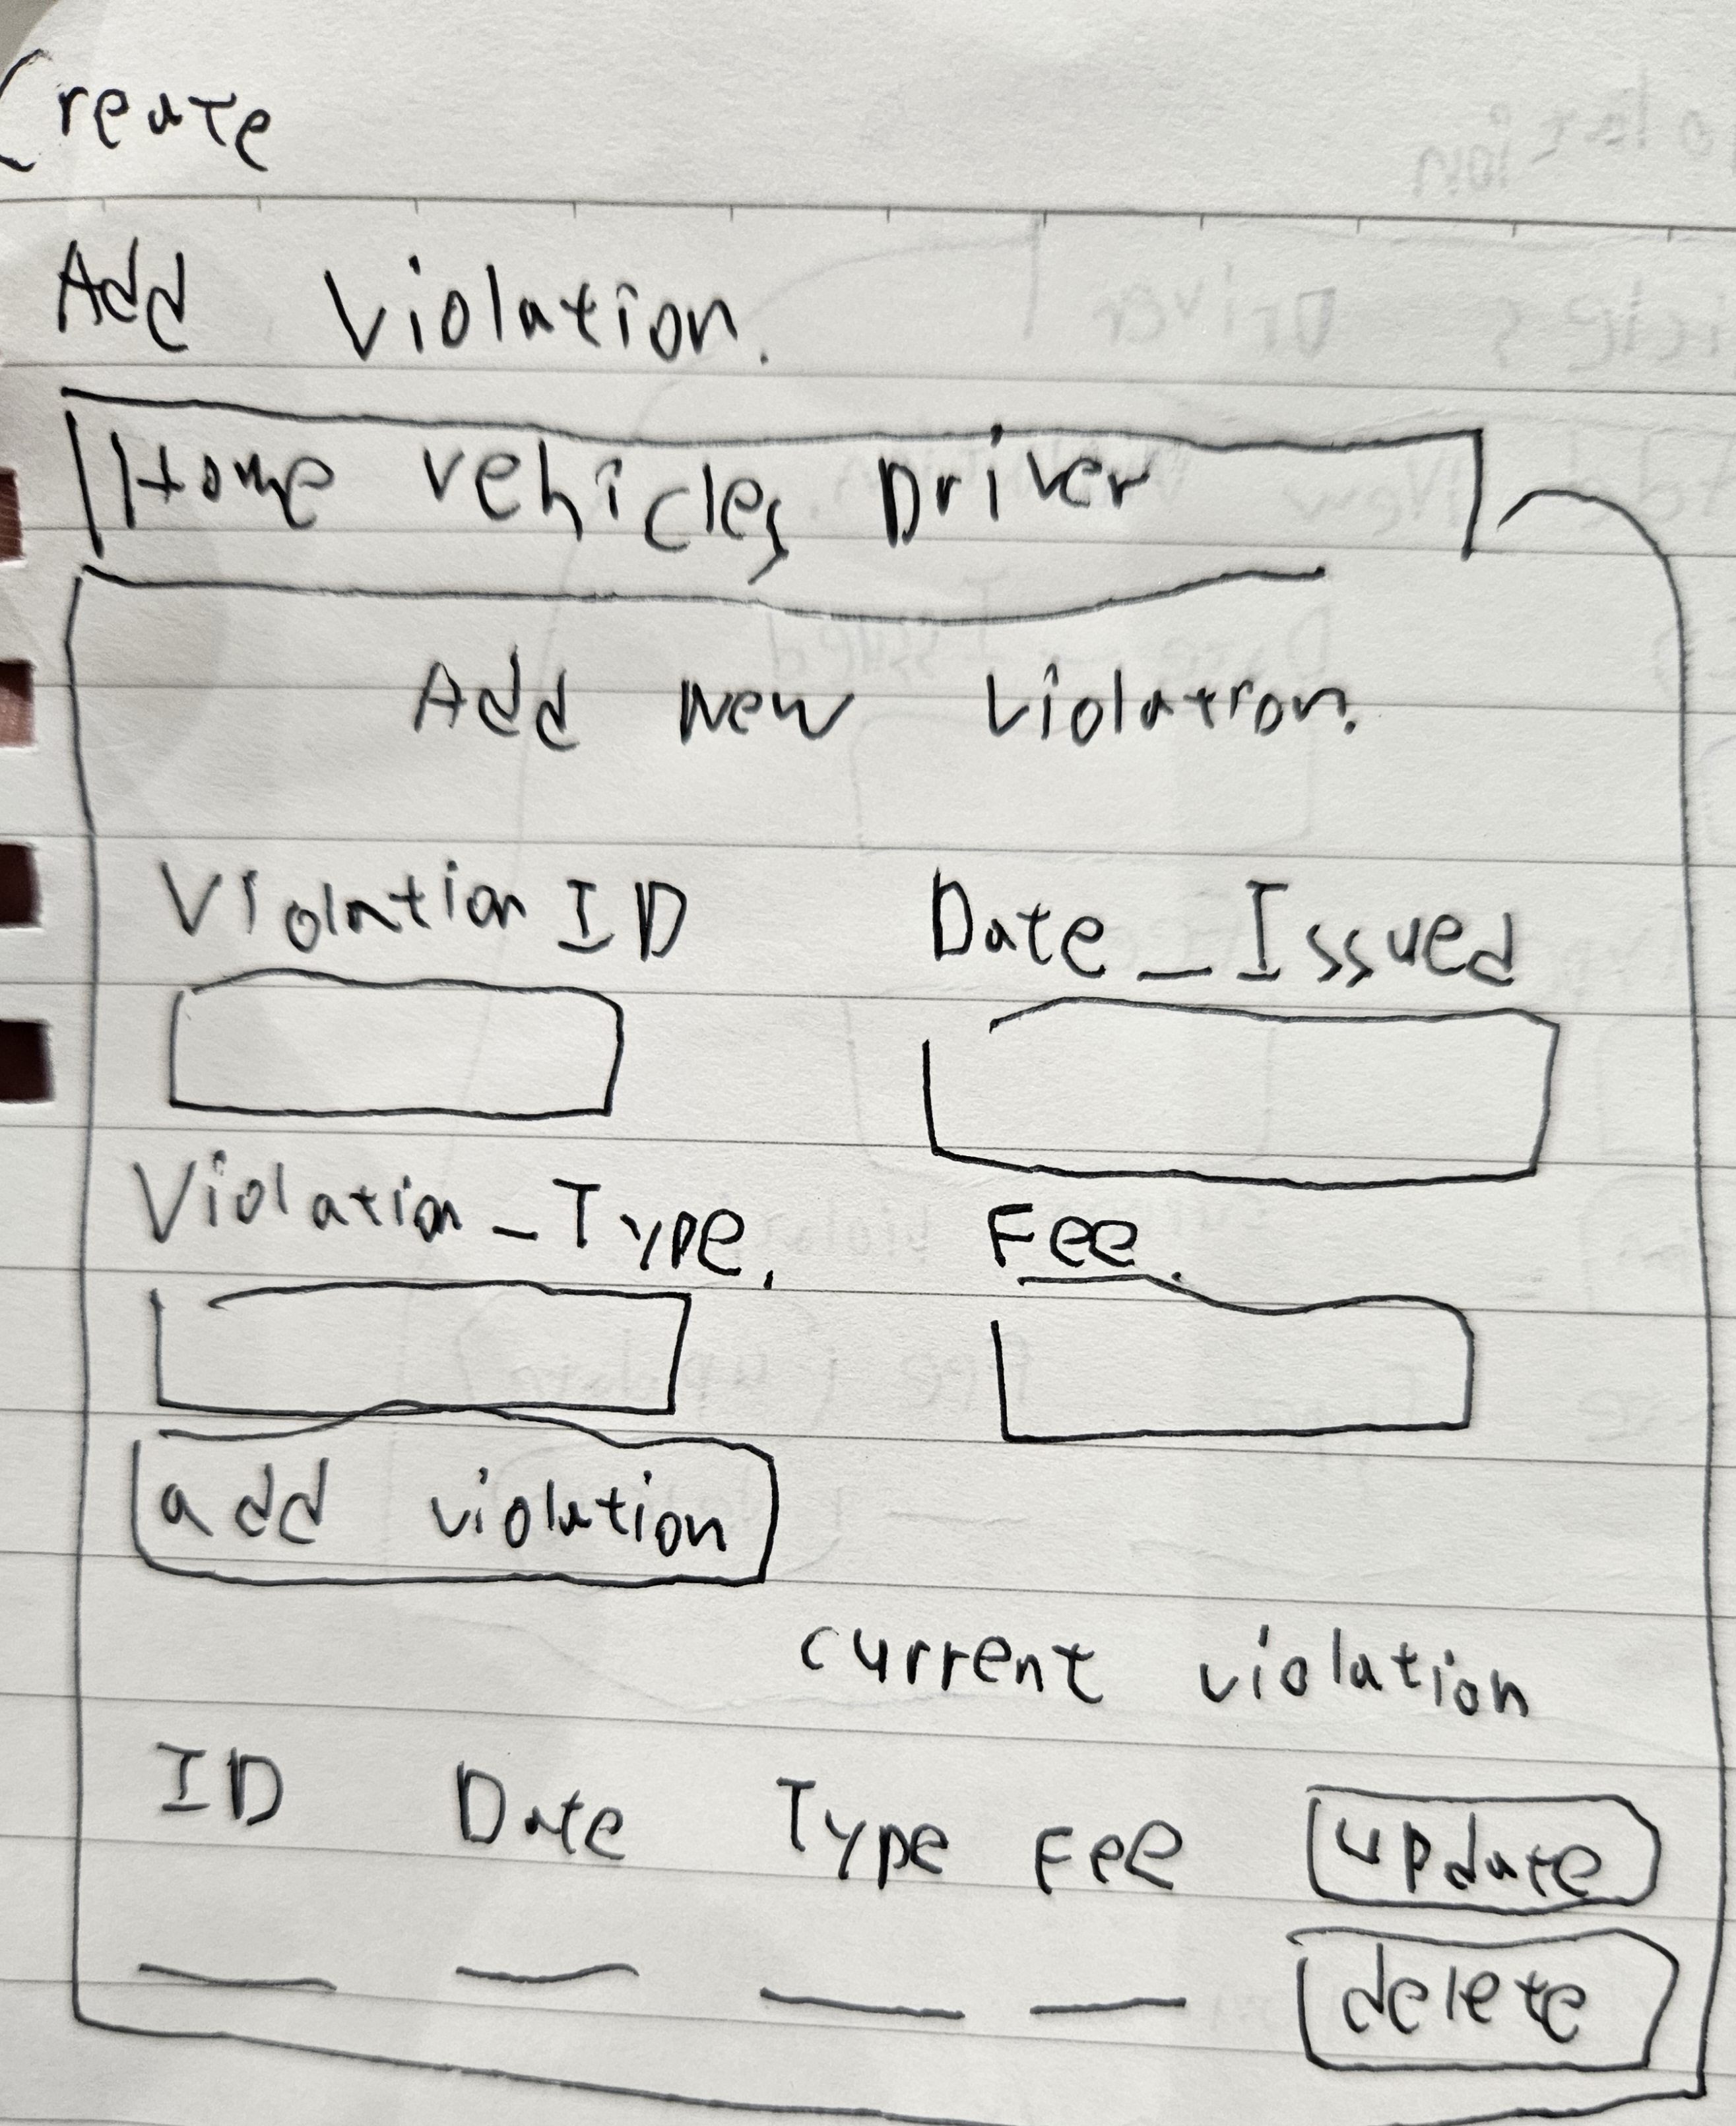 Create
Add Violation.
Home vehicles Driver
Add new violation.
Violation ID Date_Issued
Violation_Type. Fee.
add violation
current violation
ID Date Type Fee update
delete